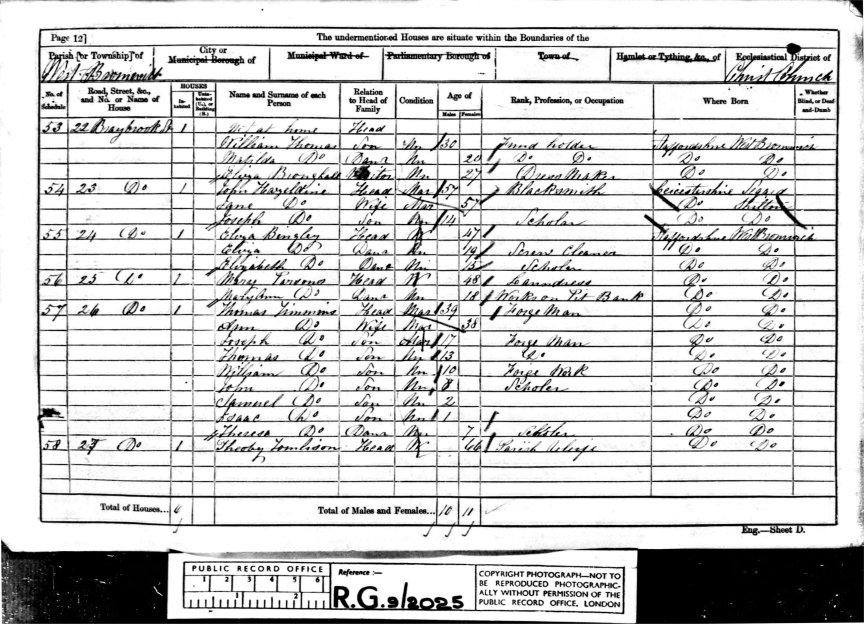 Page 12] The undermentioned Houses are situate within the Boundaries of the
Parish [or Township] of City or Municipal Borough of Municipal Ward of Parliamentary Borough of Town of Hamlet or Tything, &c., of Ecclesiastical District of
West Bromwich Christ Church
No. of Schedule Road, Street, &c., and No. or Name of House HOUSES Inhabited Uninhabited (U.), or Building (B.) Name and Surname of each Person Relation to Head of Family Condition Age of Males Females Rank, Profession, or Occupation Where Born Whether Blind, or Deaf-and-Dumb
53 22 Braybrook St 1 Not at home Head
William Thomas Son Un 30 Fund holder Staffordshire West Bromwich
Matilda Do Daur Un 20 Do Do Do Do
Visitor Un 27 Dress Maker Do Do
54 23 Do 1 John Hazeldine Head Mar 57 Blacksmith Leicestershire
Jane Do Wife Mar 57 Do
Joseph Do Son Un 14 Scholar Do Do
55 24 Do 1 Eliza Bingley Head W 47 Staffordshire West Bromwich
Do Daur Un 19 Screw Cleaner Do Do
Elizabeth Do Daur Un 15 Scholar Do Do
56 25 Do 1 Mary Parsons Head W 48 Laundress Do Do
Mary Ann Do Daur Un 18 Works on Pit Bank Do Do
57 26 Do 1 Thomas Timmins Head Mar 39 Forge Man Do Do
Ann Do Wife Mar 38 Do Do
Joseph Do Son 17 Forge Man Do Do
Thomas Do Son Un 13 Do Do Do
William Do Son Un 10 Forge Work Do Do
John Do Son Un 8 Scholar Do Do
Samuel Do Son Un 2 Do Do
Isaac Do Son Un 1 Do Do
Theresa Do Daur Un 7 Scholar Do Do
58 27 Do 1 Tomlison Head W 66 Parish Do Do
Total of Houses... 6 Total of Males and Females... 10 11
Eng.—Sheet D.
PUBLIC RECORD OFFICE
1 2 3 4 5 6
1 2
Reference :—
R.G.9/2025
COPYRIGHT PHOTOGRAPH—NOT TO
BE REPRODUCED PHOTOGRAPHIC-
ALLY WITHOUT PERMISSION OF THE
PUBLIC RECORD OFFICE, LONDON